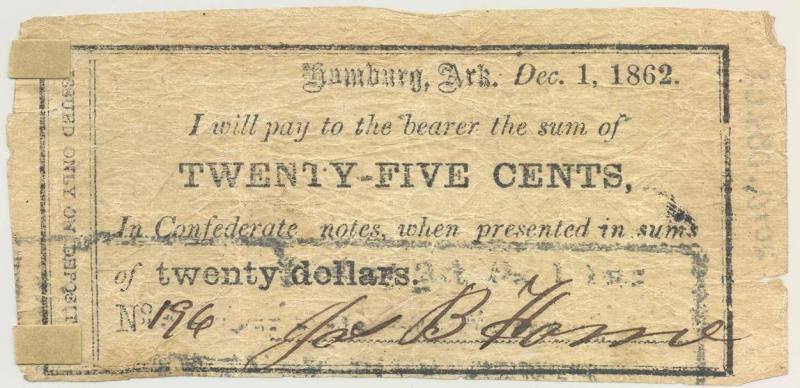 Hamburg, Ark. Dec. 1, 1862.
I will pay to the bearer the sum of
TWENTY-FIVE CENTS,
In Confederate notes, when presented in sums
of twenty dollars.
No. 196
B
ISSUED ONLY ON DEPOSIT